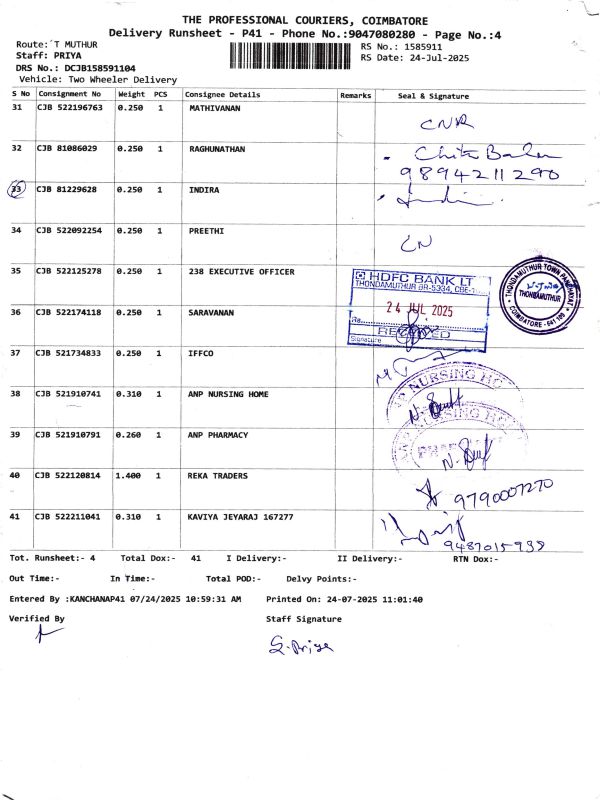 THE PROFESSIONAL COURIERS, COIMBATORE
Delivery Runsheet - P41 - Phone No.:9047080280 - Page No.:4
Route: T MUTHUR
RS No.: 1585911
Staff: PRIYA
RS Date: 24-Jul-2025
DRS No.: DCJB158591104
Vehicle: Two Wheeler Delivery
S No Consignment No Weight PCS Consignee Details Remarks Seal & Signature
31 CJB 522196763 0.250 1 MATHIVANAN CNR
32 CJB 81086029 0.250 1 RAGHUNATHAN
9894211290
33 CJB 81229628 0.250 1 INDIRA
34 CJB 522092254 0.250 1 PREETHI CN
35 CJB 522125278 0.250 1 238 EXECUTIVE OFFICER
HDFC BANK LT
THONDAMUTHUR BR-5334, CBE-
24 JUL 2025
RECEIVED
Signature
THONDAMUTHUR TOWN PANCHAYAT
THONDAMUTHUR
COIMBATORE - 641 109
36 CJB 522174118 0.250 1 SARAVANAN
37 CJB 521734833 0.250 1 IFFCO
38 CJB 521910741 0.310 1 ANP NURSING HOME
NURSING HO
39 CJB 521910791 0.260 1 ANP PHARMACY
40 CJB 522120814 1.400 1 REKA TRADERS 9790007270
41 CJB 522211041 0.310 1 KAVIYA JEYARAJ 167277
9487015939
Tot. Runsheet:- 4 Total Dox:- 41 I Delivery:- II Delivery:- RTN Dox:-
Out Time:- In Time:- Total POD:- Delvy Points:-
Entered By :KANCHANAP41 07/24/2025 10:59:31 AM Printed On: 24-07-2025 11:01:40
Verified By Staff Signature
S. Priya